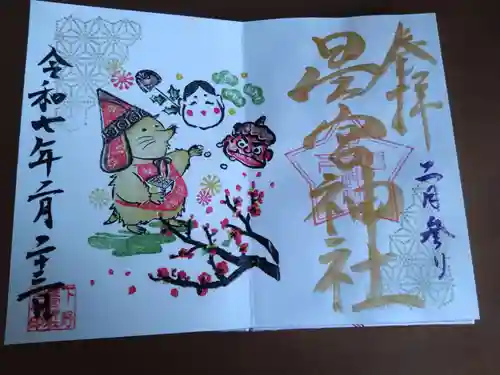 奉拝
星宮神社
二月参り
令和七年二月二十三日
下野